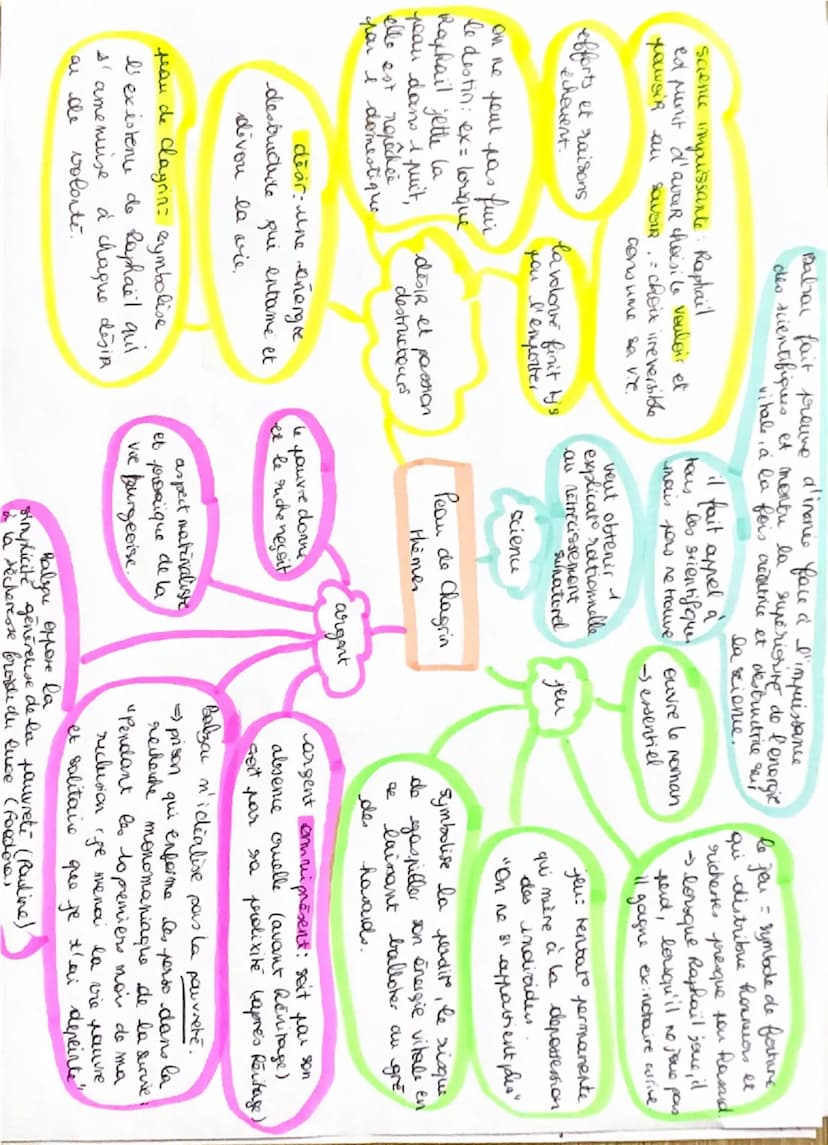 Peau de Chagrin
thèmes
science
veut obtenir 1
explicat° rationnelle
au rétrécissement
surnaturel
il fait appel à
tous les scientifiques
mais pas ne trouve
Balzac fait preuve d'ironie face à l'impuissance
des scientifiques et montre la supériorité de l'énergie
vitale, à la fois créatrice et destructrice sur
la science.
désir et passion
destructeurs
la volonté finit tjs
par l'emporter
science impuissante : Raphaël
est punit d'avoir choisi le vouloir et
pouvoir au savoir. = choix irréversible
consume sa vie.
efforts et raisons
échouent.
on ne peut pas fuir
le destin : ex = lorsque
Raphaël jette la
peau dans 1 puit,
elle est repêchée
par 1 domestique.
désir : une énergie
destructrice qui entame et
dévou la vie.
peau de chagrin = symbolise
l'existence de Raphaël qui
s'amenuise à chaque désir
ou de volonté.
jeu
ouvre le roman
→ essentiel
le jeu = symbole de fortune
qui distribue honneurs et
richesses presque par hasard.
→ lorsque Raphaël joue, il
perd, lorsqu'il ne joue pas
il gagne ex: notaire arrive.
jeu : tentat° permanente
qui mène à la dépossession
des individus.
"On ne s'appartient plus"
symbolise la perdit°, le risque
de gaspiller son énergie vitale en
se laissant balloter au gré
des hasards.
argent
le pauvre donne
et le riche reçoit
aspect matérialiste
et prosaïque de la
vie bourgeoise.
argent omniprésent : soit par son
absence cruelle (avant héritage)
soit par sa prolixité (après héritage)
Balzac n'idéalise pas la pauvreté.
⇒ prison qui enferme les perso dans la
recherche monomaniaque de la survie :
"Pendant les 10 premiers mois de ma
reclusion, je menai la vie pauvre
et solitaire que je t'ai dépeinte"
Balzac oppose la
simplicité généreuse de la pauvreté (Pauline)
à la sécheresse froide du luxe (Foedora)